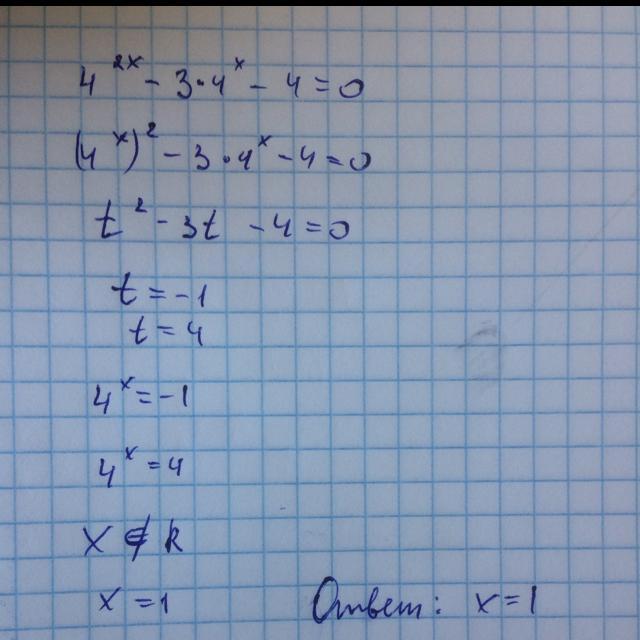 4^{2x} - 3·4^x - 4 = 0
(4^x)^2 - 3·4^x - 4 = 0
t^2 - 3t - 4 = 0
t = -1
t = 4
4^x = -1
4^x = 4
x ∉ R
x = 1 Ответ: x = 1